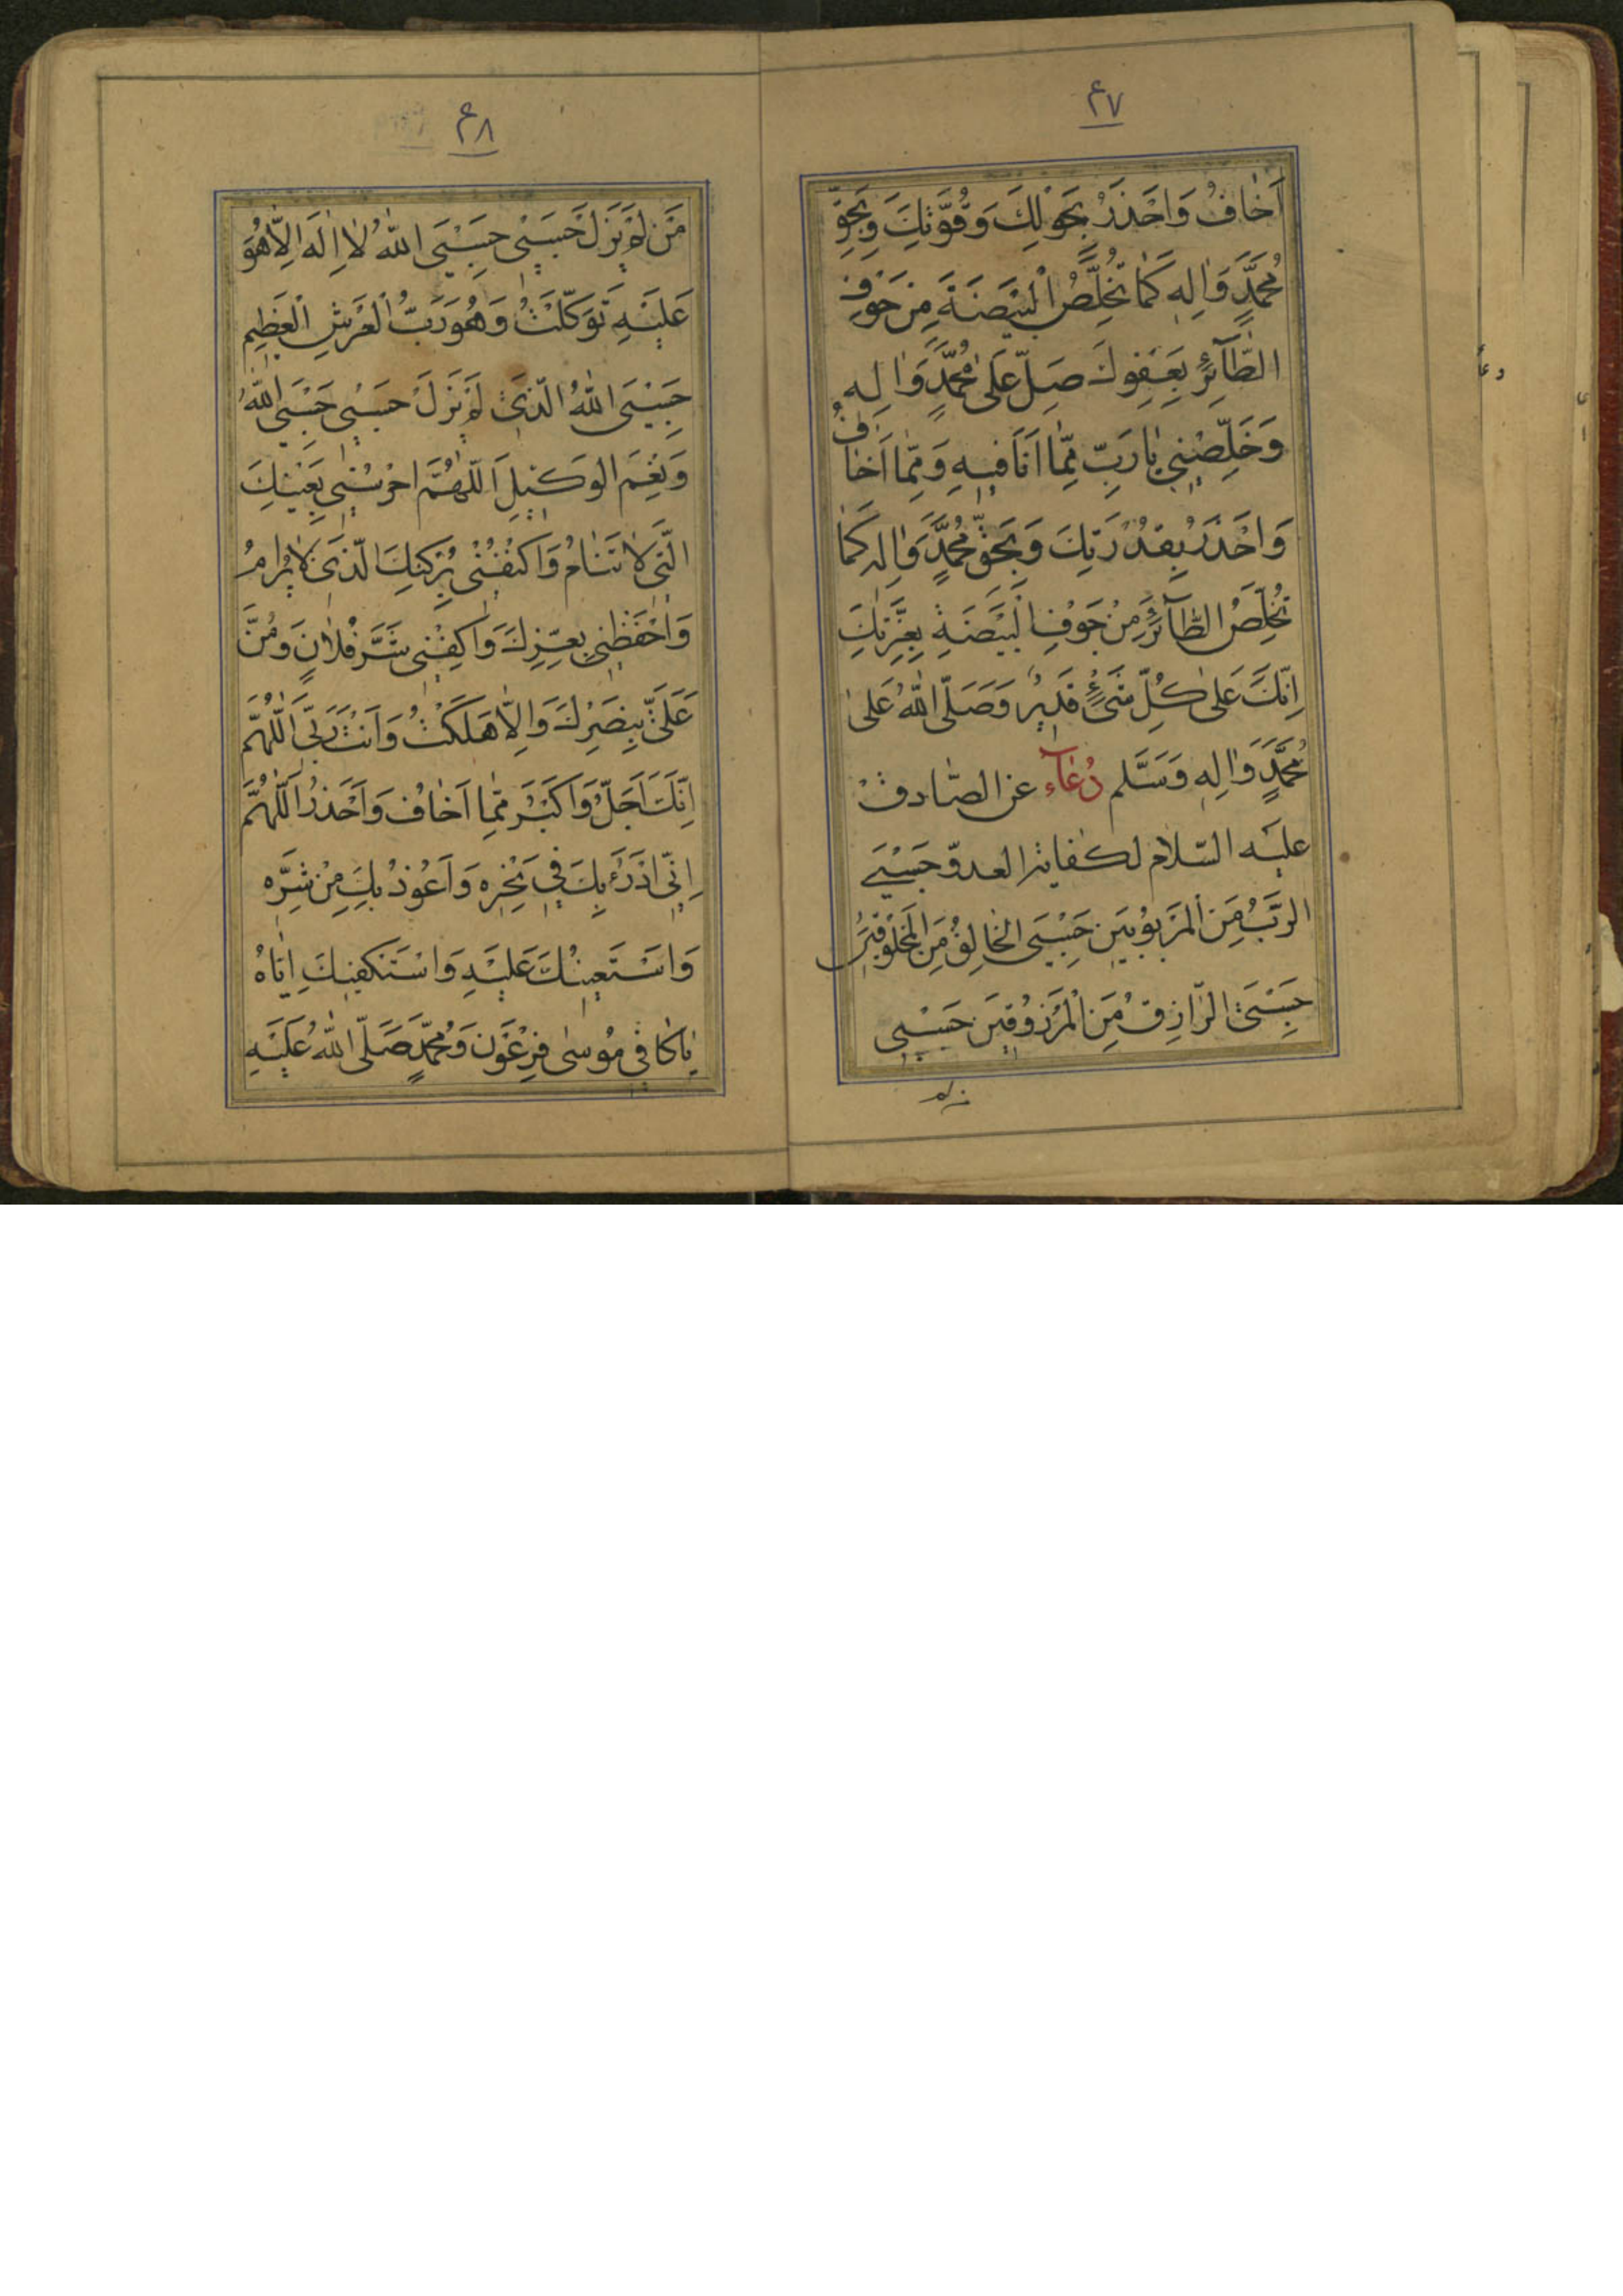 ۴۷
اَخٰافُ وَاَحْذَرُ بِحَوْلِكَ وَقُوَّتِكَ وَبِحَقِّ
مُحَمَّدٍ وَاٰلِهِ كَمٰا تُخَلِّصُ الْبَيْضَةَ مِنْ جَوْفِ
الطّٰآئِرِ بِعَفْوِكَ صَلِّ عَلىٰ مُحَمَّدٍ وَاٰلِهِ
وَخَلِّصْنِي يٰا رَبِّ مِمّٰا اَنَا فيهِ وَمِمّٰا اَخٰافُ
وَاَحْذَرُ بِقُدْرَتِكَ وَبِحَقِّ مُحَمَّدٍ وَاٰلِهِ كَمٰا
تُخَلِّصُ الطّٰآئِرَ مِنْ جَوْفِ الْبَيْضَةِ بِعِزَّتِكَ
اِنَّكَ عَلىٰ كُلِّ شَىْءٍ قَديرٌ وَصَلَّى اللّٰهُ عَلىٰ
مُحَمَّدٍ وَاٰلِهِ وَسَلَّم دُعٰآء عن الصّٰادق
عليه السّلام لكفاية العدوّ حَسْبِيَ
الرَّبُّ مِنَ الْمَرْبُوبينَ حَسْبِيَ الْخٰالِقُ مِنَ الْمَخْلُوقينَ
حَسْبِيَ الرّٰازِقُ مِنَ الْمَرْزُوقينَ حَسْبي
من لم
۴۸
مَنْ لَمْ يَزَلْ حَسْبي حَسْبِيَ اللّٰهُ لٰا اِلٰهَ اِلّٰا هُوَ
عَلَيْهِ تَوَكَّلْتُ وَهُوَ رَبُّ الْعَرْشِ الْعَظيمِ
حَسْبِيَ اللّٰهُ الَّذي لَمْ يَزَلْ حَسْبي حَسْبِيَ اللّٰهُ
وَنِعْمَ الوَكيلُ اَللّٰهُمَّ احْرُسْني بِعَيْنِكَ
الَّتي لٰا تَنٰامُ وَاكْنُفْني بِرُكْنِكَ الَّذي لٰا يُرٰامُ
وَاحْفَظْني بِعِزِّكَ وَاكْفِني شَرَّ فُلٰانٍ وَمُنَّ
عَلَيَّ بِنَصْرِكَ وَاِلّٰا هَلَكْتُ وَاَنْتَ رَبّي اَللّٰهُمَّ
اِنَّكَ اَجَلُّ وَاَكْبَرُ مِمّٰا اَخٰافُ وَاَحْذَرُ اَللّٰهُمَّ
اِنّي اَدْرَءُ بِكَ في نَحْرِهِ وَاَعُوذُ بِكَ مِنْ شَرِّهِ
وَاَسْتَعينُكَ عَلَيْهِ وَاَسْتَكْفيكَ اِيّٰاهُ
يٰا كٰافِيَ مُوسىٰ فِرْعَوْنَ وَمُحَمَّدٍ صَلَّى اللّٰهُ عَلَيْهِ